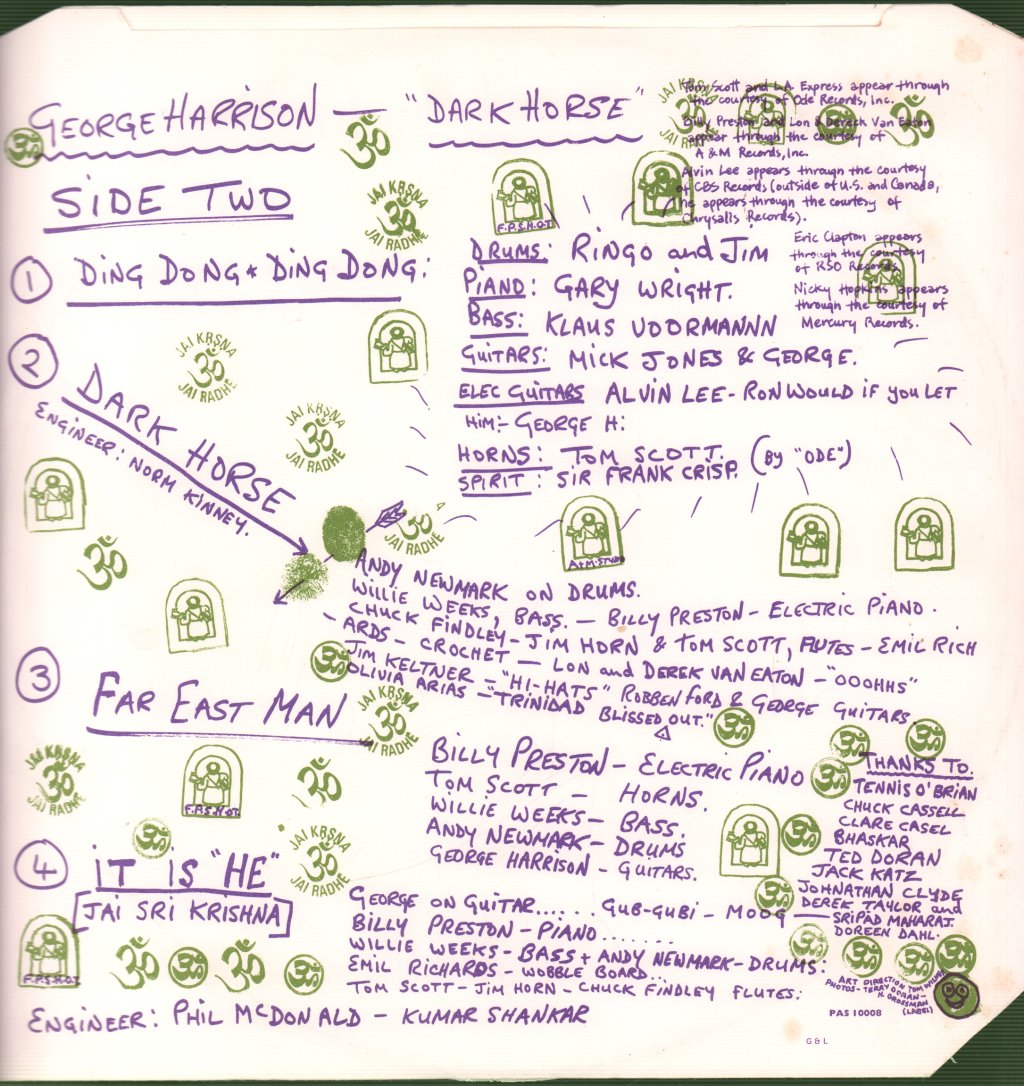 GEORGE HARRISON — "DARK HORSE"
SIDE TWO
Tom Scott and L.A. Express appear through
the courtesy of Ode Records, Inc.
Billy Preston and Lon & Dereck Van Eaton
appear through the courtesy of
A & M Records, Inc.
Alvin Lee appears through the courtesy
of CBS Records (outside of U.S. and Canada,
he appears through the courtesy of
Chrysalis Records).
Eric Clapton appears
through the courtesy
of RSO Records
Nicky Hopkins appears
through the courtesy of
Mercury Records.
JAI KRSNA
ॐ
JAI RADHE
F.P.S.H.O.T.
① DING DONG * DING DONG:
DRUMS: RINGO and JIM
PIANO: GARY WRIGHT.
BASS: KLAUS VOORMANNN
GUITARS: MICK JONES & GEORGE.
ELEC GUITARS ALVIN LEE - RON WOULD IF YOU LET
HIM:- GEORGE H:
HORNS: TOM SCOTT. (BY "ODE")
SPIRIT: SIR FRANK CRISP.
② DARK HORSE
ENGINEER: NORM KINNEY.
JAI KRSNA
ॐ
JAI RADHE
JAI KRSNA
ॐ
JAI RADHE
JAI RADHE
A+M. STUDIO
ANDY NEWMARK ON DRUMS.
WILLIE WEEKS, BASS. — BILLY PRESTON - ELECTRIC PIANO.
CHUCK FINDLEY - JIM HORN & TOM SCOTT, FLUTES - EMIL RICH
- ARDS - CROCHET — LON and DEREK VAN EATON - "OOOHHS"
JIM KELTNER - "HI-HATS" ROBBEN FORD & GEORGE GUITARS.
OLIVIA ARIAS - "TRINIDAD BLISSED OUT."
③ FAR EAST MAN
JAI KRSNA
ॐ
JAI RADHE
BILLY PRESTON - ELECTRIC PIANO
TOM SCOTT - HORNS.
WILLIE WEEKS - BASS.
ANDY NEWMARK - DRUMS
GEORGE HARRISON - GUITARS.
THANKS TO.
TENNIS O'BRIAN
CHUCK CASSELL
CLARE CASEL
BHASKAR
TED DORAN
JACK KATZ
JOHNATHAN CLYDE
DEREK TAYLOR and
SRIPAD MAHARAJ.
DOREEN DAHL.
JAI KRSNA
ॐ
JAI RADHE
F.P.S.H.O.T.
JAI KRSNA
ॐ
JAI RADHE
④ IT IS "HE"
[JAI SRI KRISHNA]
GEORGE ON GUITAR...... GUB-GUBI - MOOG
BILLY PRESTON - PIANO........
WILLIE WEEKS - BASS + ANDY NEWMARK - DRUMS:
EMIL RICHARDS - WOBBLE BOARD...
TOM SCOTT - JIM HORN - CHUCK FINDLEY FLUTES:
F.P.S.H.O.T.
ॐ ॐ ॐ ॐ
ENGINEER: PHIL McDONALD - KUMAR SHANKAR
ART DIRECTION TOM WILKES
PHOTOS - TERRY DORAN -
H. GROSSMAN
(LABEL)
PAS 10008
G & L